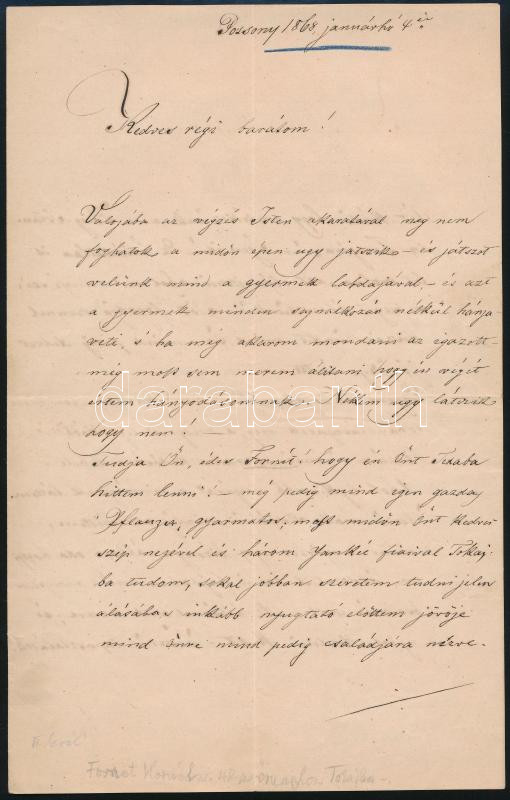 Pozsony 1868, januárhó 4én
Kedves régi barátom!
Valojába az végzés Isten akaratával meg nem
foghatok, a midőn épen ugy játszik – és játszot
velünk mind a gyermek labdajával, – és azt
a gyermek minden sajnálkozás nélkül hánja
veti, s ha még akarom mondani az igazatt –
még moss sem merem álitani hogy én végét
értem hányodásomnak. Nékem ugy látszik
hogy nem!
Tudja Ön, édes Fornét! hogy én Önt Texaba
hittem lenni! – még pedig mind egen gazdag
Pflanzer, gyarmatos, moss midőn Önt kedves
szép nejével és három Yankée fiaival Tokaj-
ba tudom, sokal jobban szeretem tudni jelen
álásába, inkább nyugtató előttem jövője
mind Önre mind pedig családjára nézve.
II levél
Fornet
darabanth